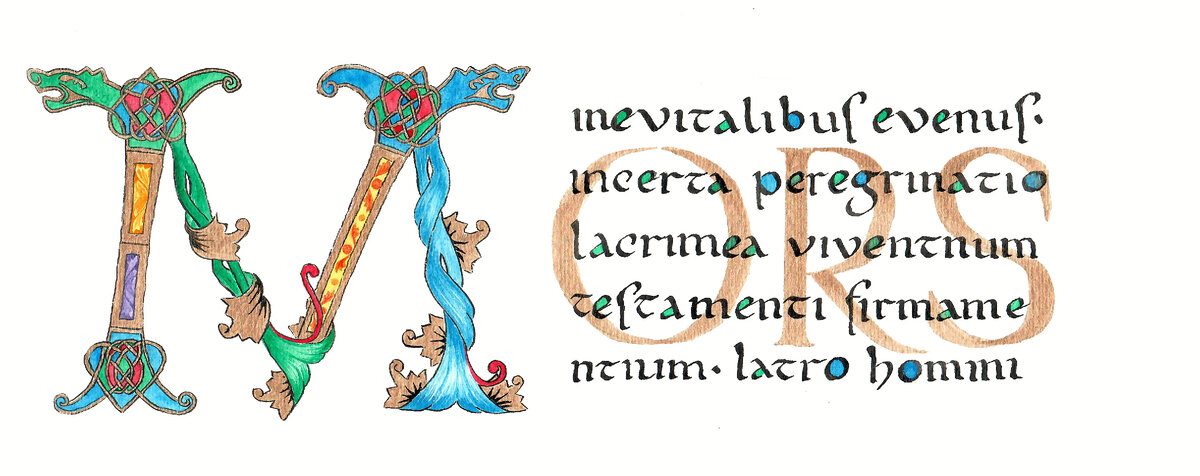 MORS
inevitalibus evenus·
incerta peregrinatio
lacrimea viventnum
testamenti firmame
ntium· latro homini